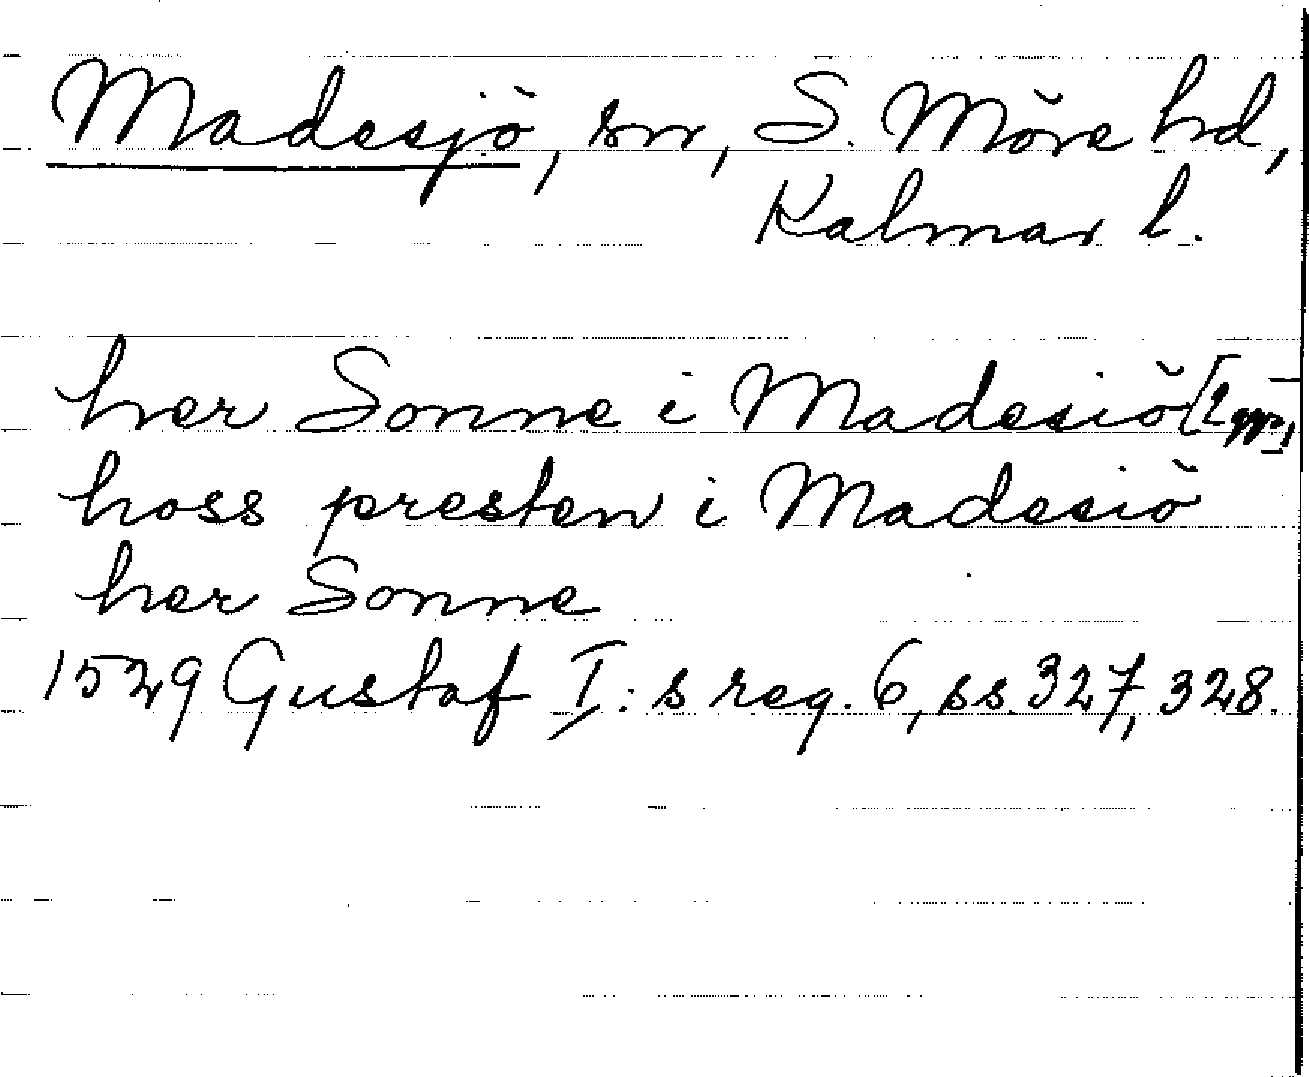 Madesjö, sn, S. Möre hd,
Kalmar l.
her Sonne i Madesiö [2 ggr],
hoss presten i Madesiö
her Sonne
1529 Gustaf I:s reg. 6, ss. 327, 328.